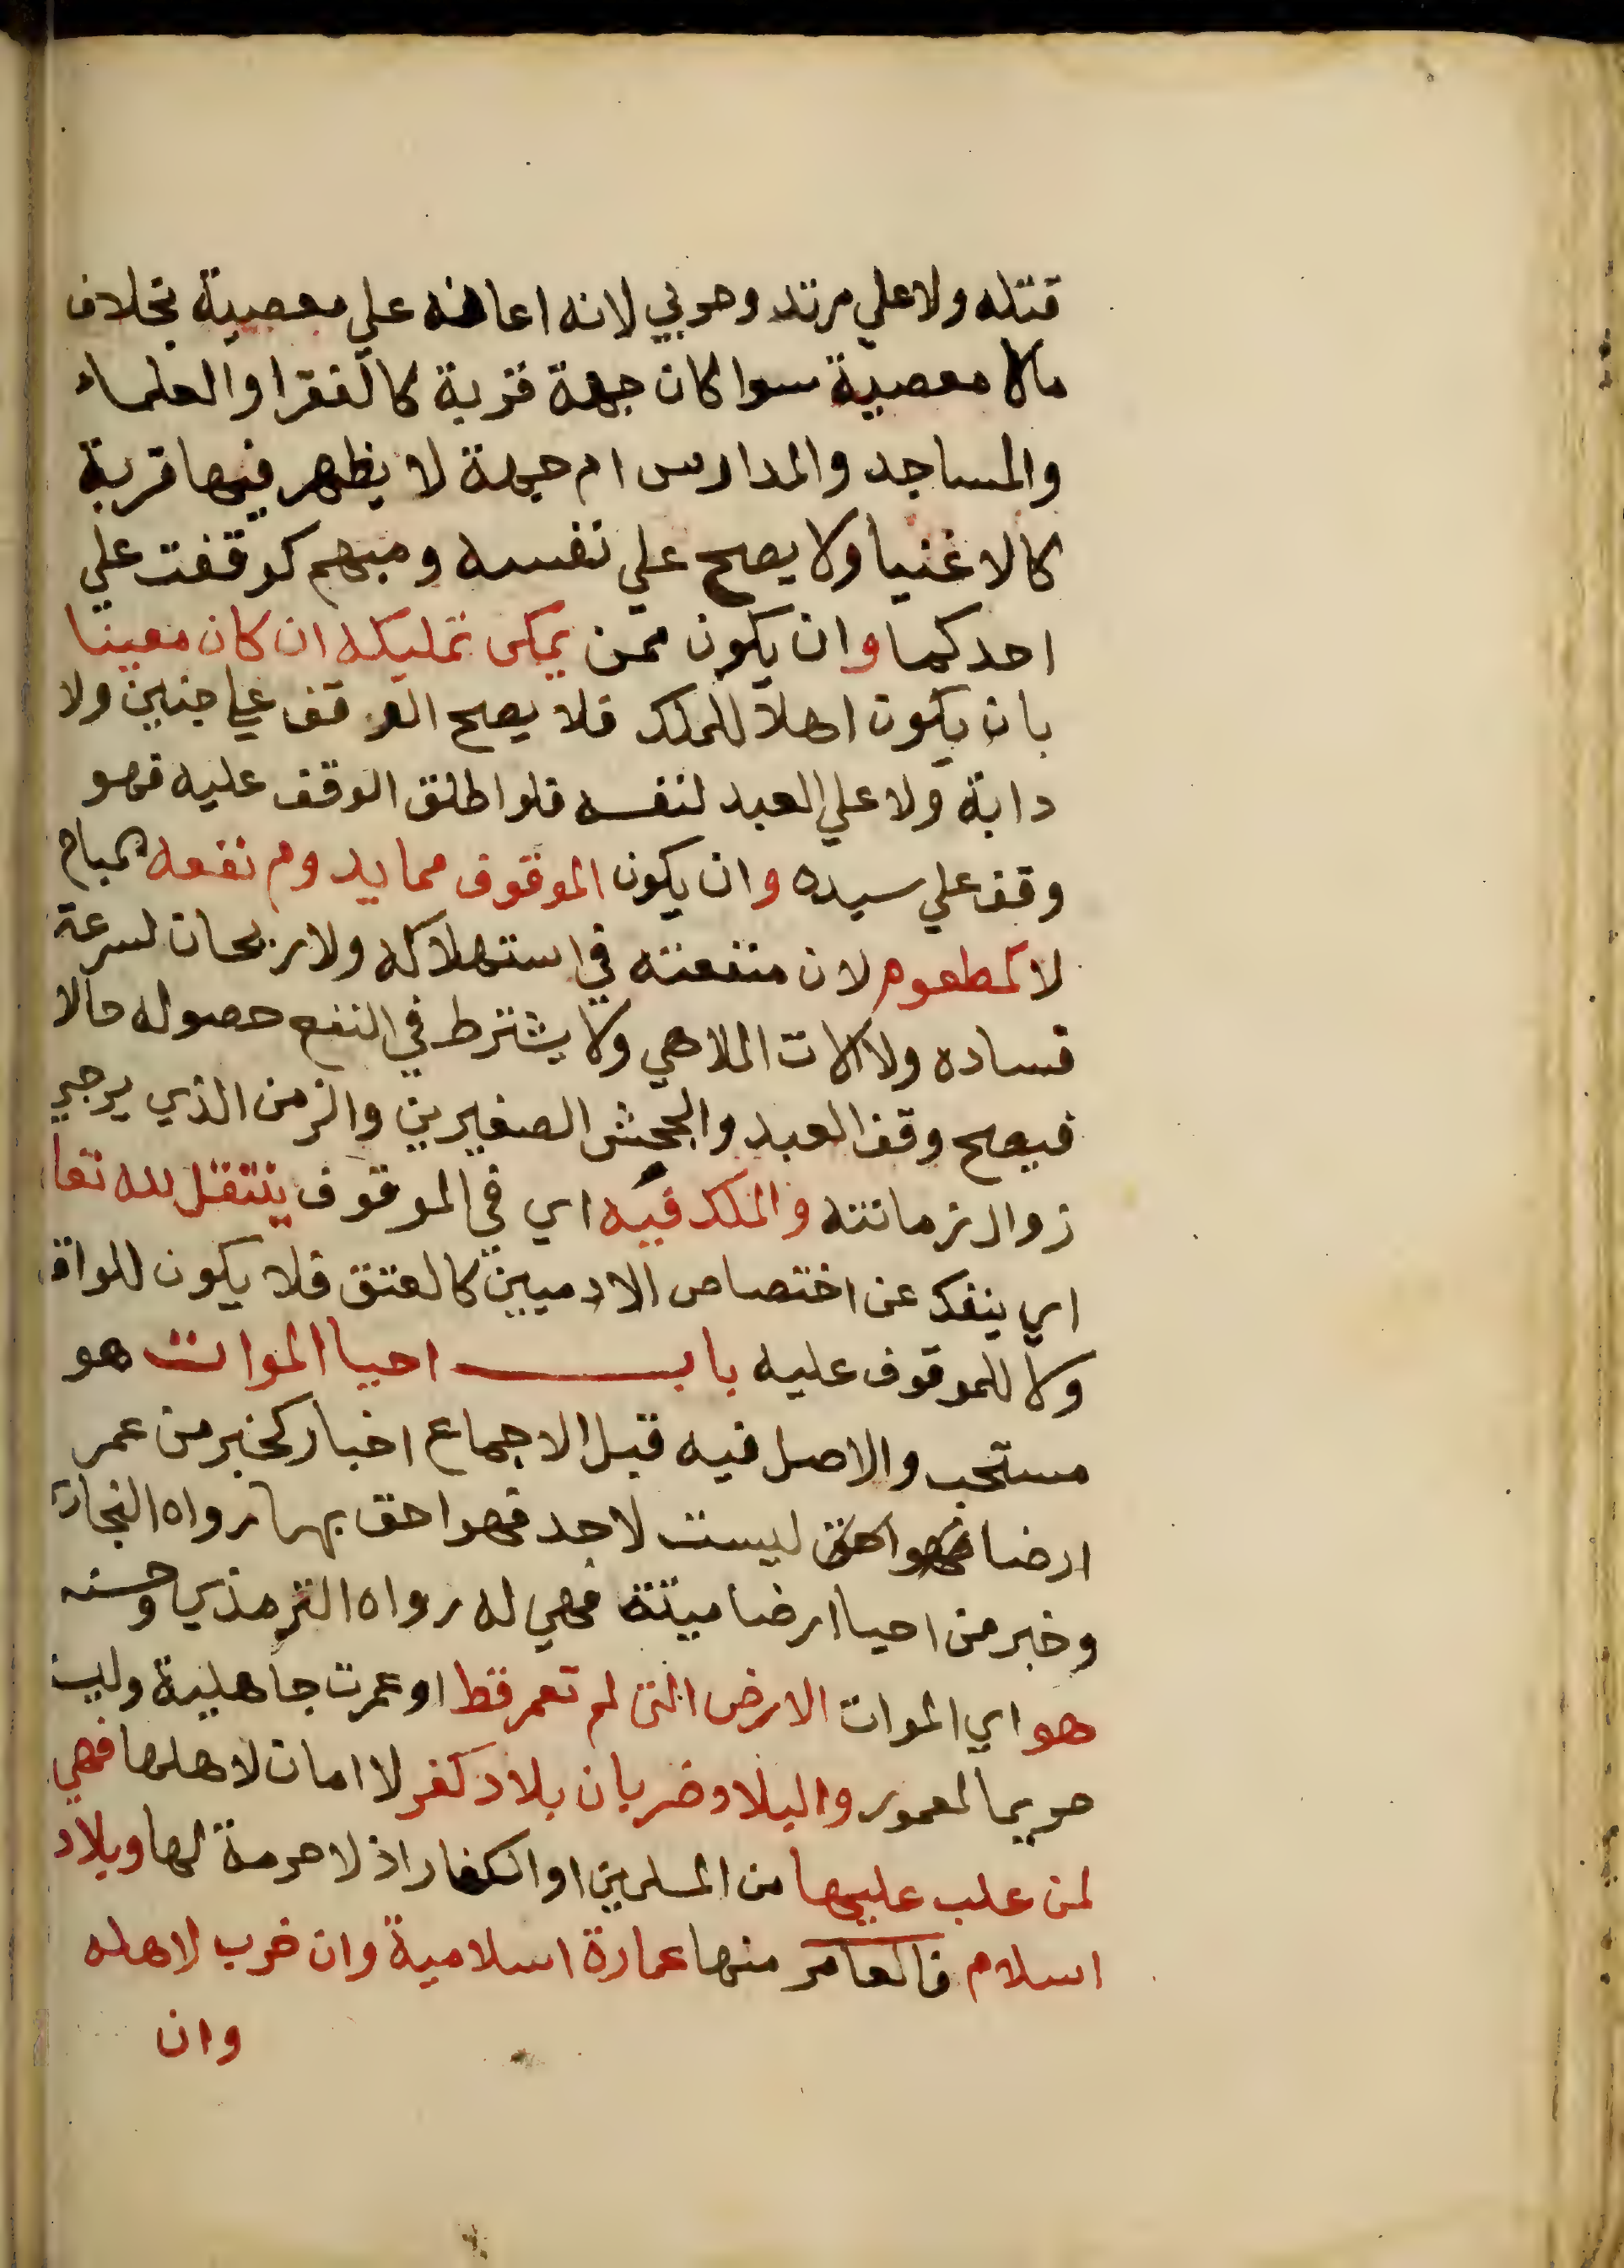 قتله ولا علي مرتد وحربي لانه اعانه علي معصية بخلاف
مالا معصية سوا كان جهة قربة كالفقرا والعلماء
والمساجد والمدارس ام جهة لا يظهر فيها قربة
كالاغنيا ولا يصح علي نفسه ومبهم كوقفت علي
احدكما وان يكون ممن يمكن تمليكه ان كان معينا
بان يكون اهلا للملك فلا يصح الوقف علي جنين ولا
دابة ولا علي العبد لنفسه فلو اطلق الوقف عليه فهو
وقف علي سيده وان يكون الموقوف مما يدوم نفعه المباح
لا كمطعوم لان منفعته في استهلاكه ولا ريحان لسرعة
فساده ولا الات الملاهي ولا يشترط في النفع حصوله حالا
فيصح وقف العبد والجحش الصغيرين والزمن الذي يرجي
زوال زمانته والملك فيه اي في الموقوف ينتقل لله تعا
اي ينفك عن اختصاص الادميين كالعتق فلا يكون للواقف
ولا للموقوف عليه باب احيا الموات هو
مستحب والاصل فيه قبل الاجماع اخبار كخبر من عمر
ارضا ليست لاحد فهو احق بها رواه البخاري
وخبر من احيا ارضا ميتة فهي له رواه الترمذي وحسنه
هو اي الموات الارض التي لم تعمر قط او عمرت جاهلية وليست
حريما لمعمور والبلاد ضربان بلاد كفر لا امان لاهلها فهي
لمن غلب عليها من المسلمين او الكفار اذ لا حرمة لها وبلاد
اسلام فالعامر منها عمارة اسلامية وان خرب لاهله
وان